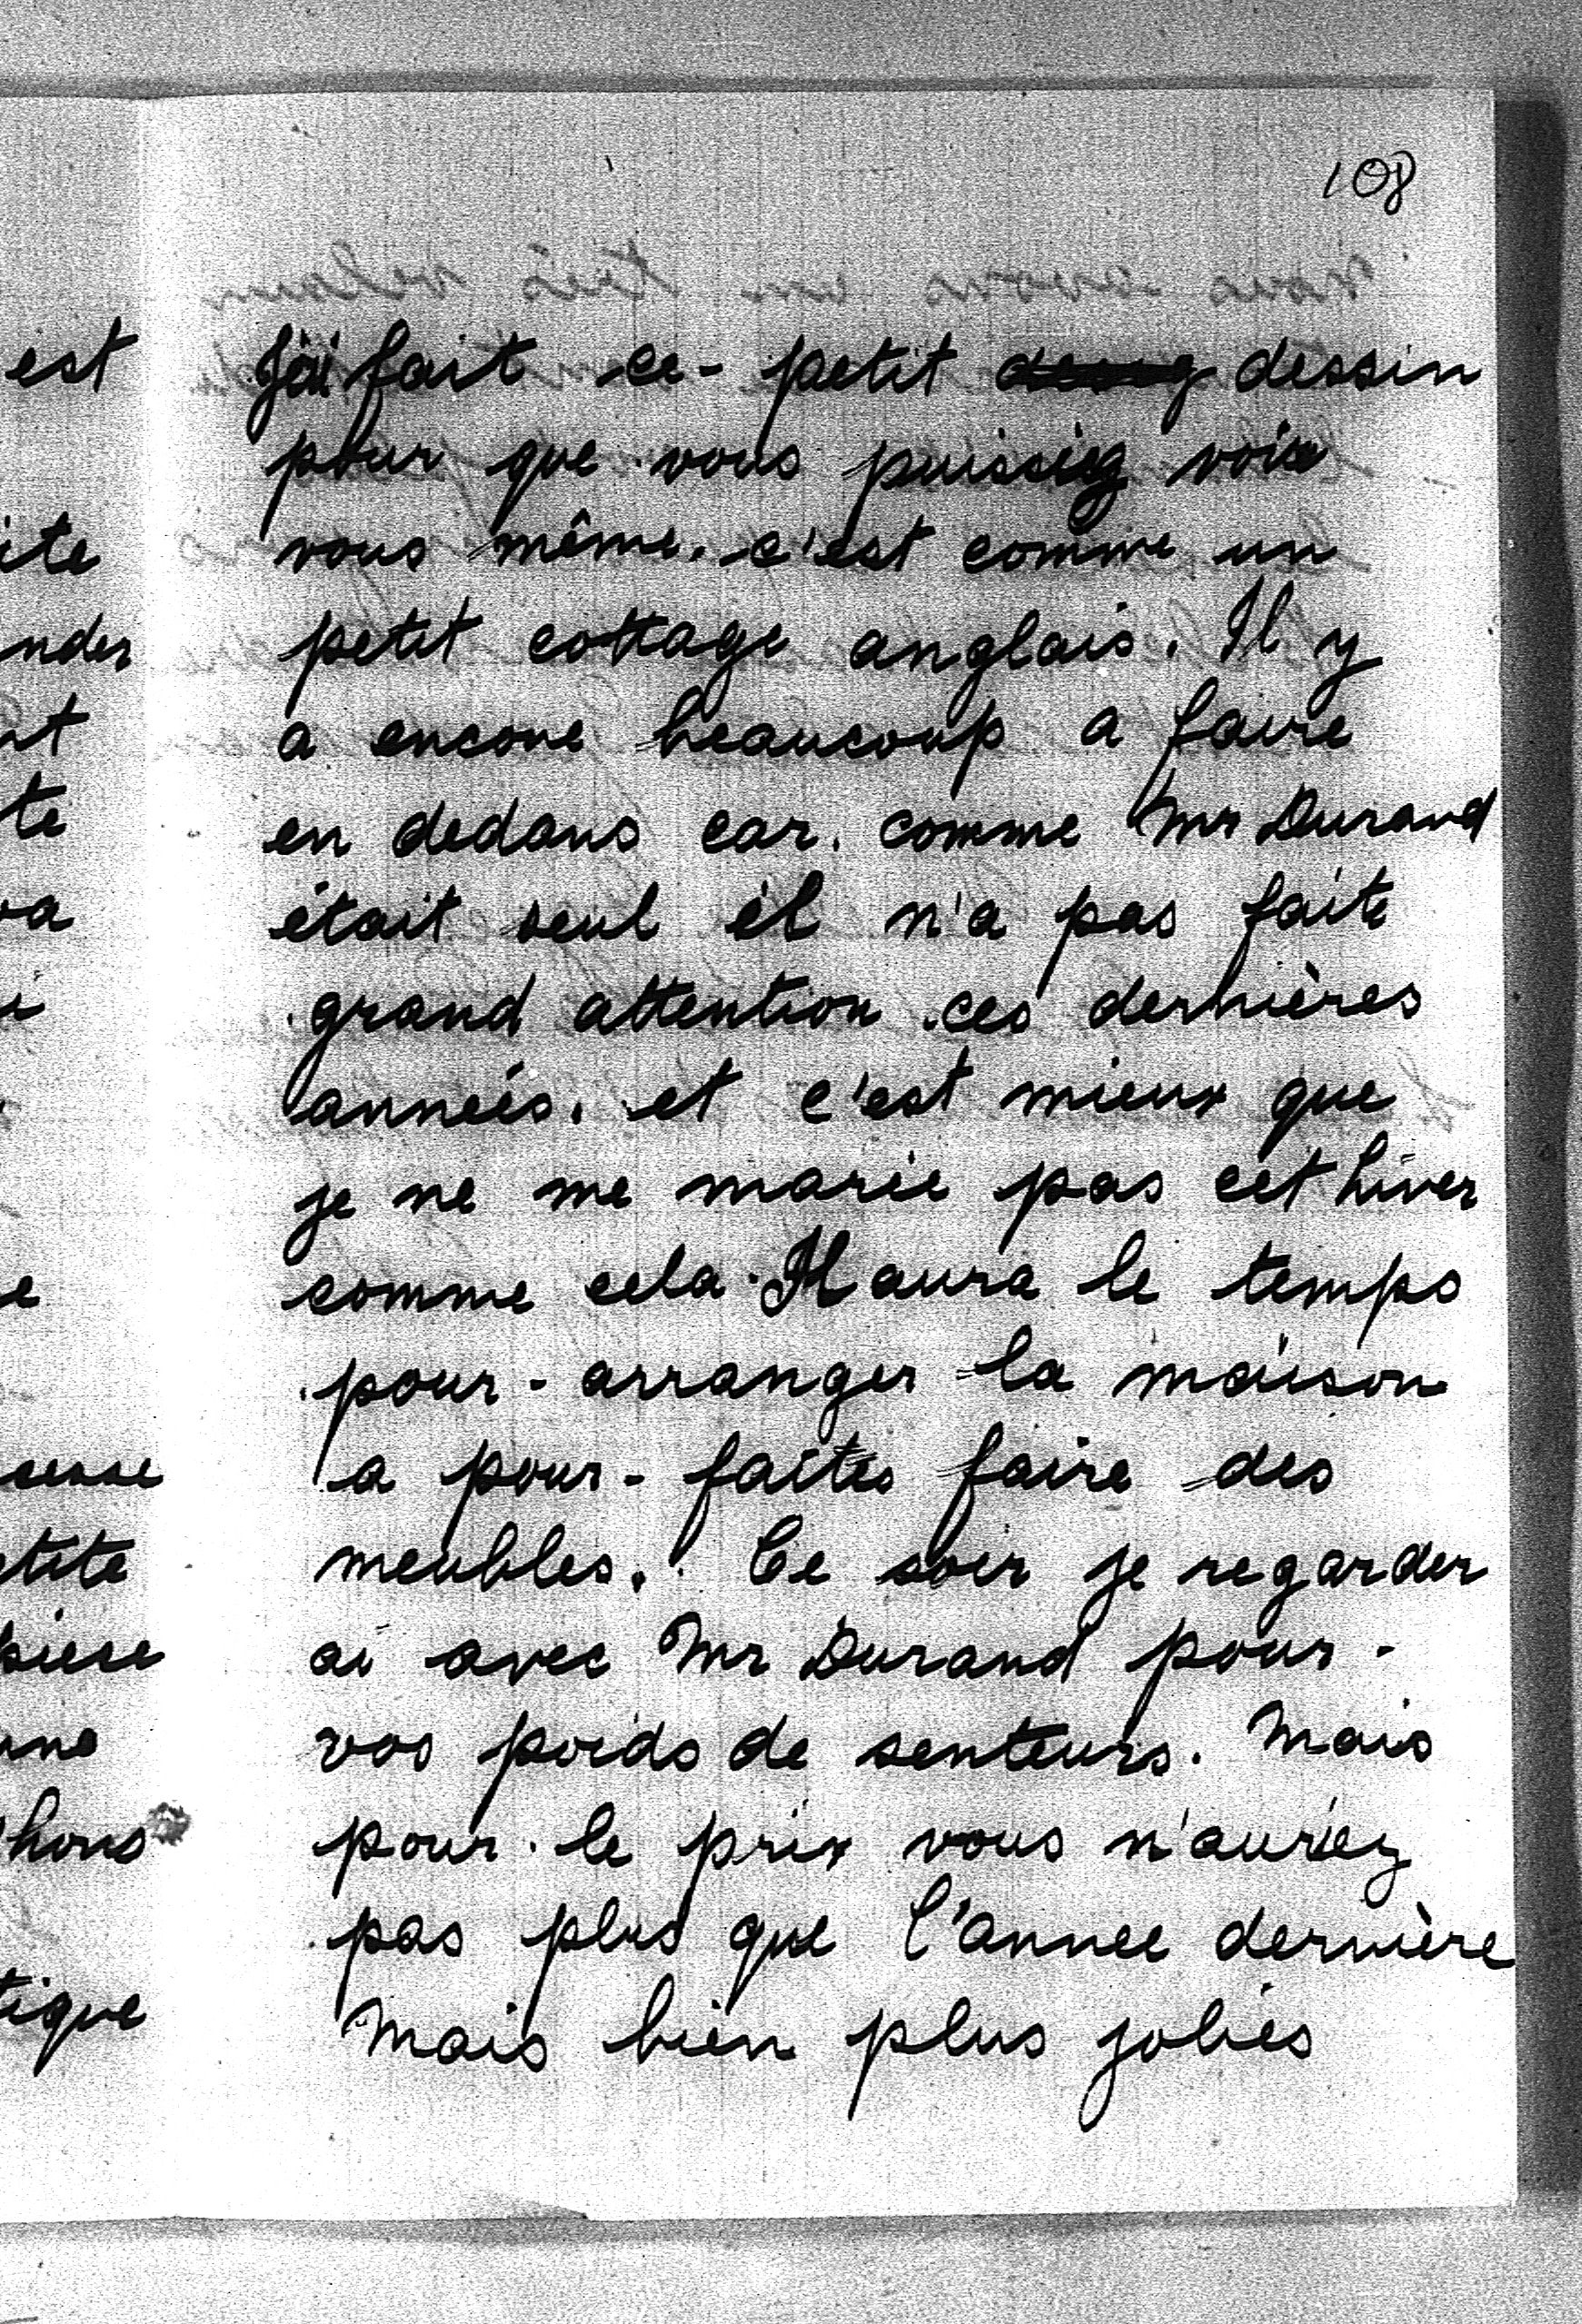 108
J'ai fait ce petit dessin
pour que vous puissiez voir
vous même. c'est comme un
petit cottage anglais. Il y
a encore beaucoup a faire
en dedans car. comme Mr Durand
était seul il n'a pas faite
grand attention ces dernières
années. et c'est mieux que
je ne me marie pas cet hiver
comme cela Il aura le temps
pour - arranger la maison
a pour - faites faire des
meubles. Ce soir je regarder
ai avec Mr Durand pour -
vos poids de senteurs. Mais
pour le prix vous n'auriez
pas plus que l'annee dernière
Mais bien plus jolies